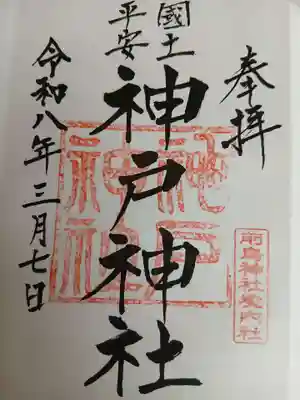 奉拝
國土
平安
神戸神社
令和八年三月七日
神戸
神社
前鳥神社境内社